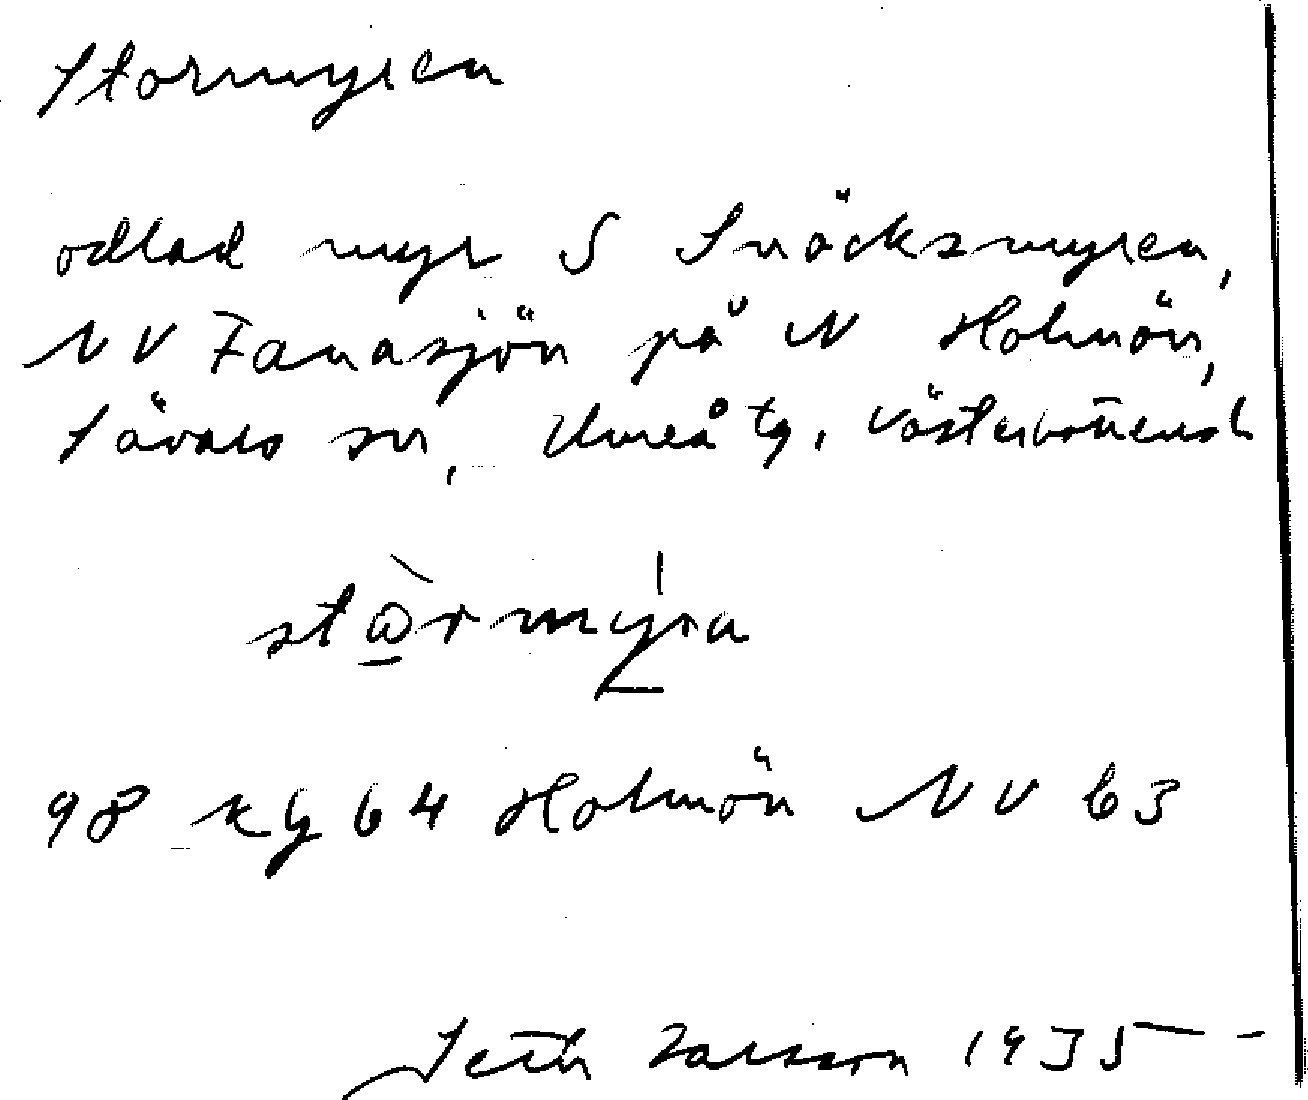 Stormyren
odlad myr S Snäcksmyren,
NV Fanasjön på N Holmön,
Sävars sn, Umeå tg, Västerbottens l.
stɷ̀rmy̍ra
98 kg 64 Holmön NV 63
Seth Larsson 1935 -